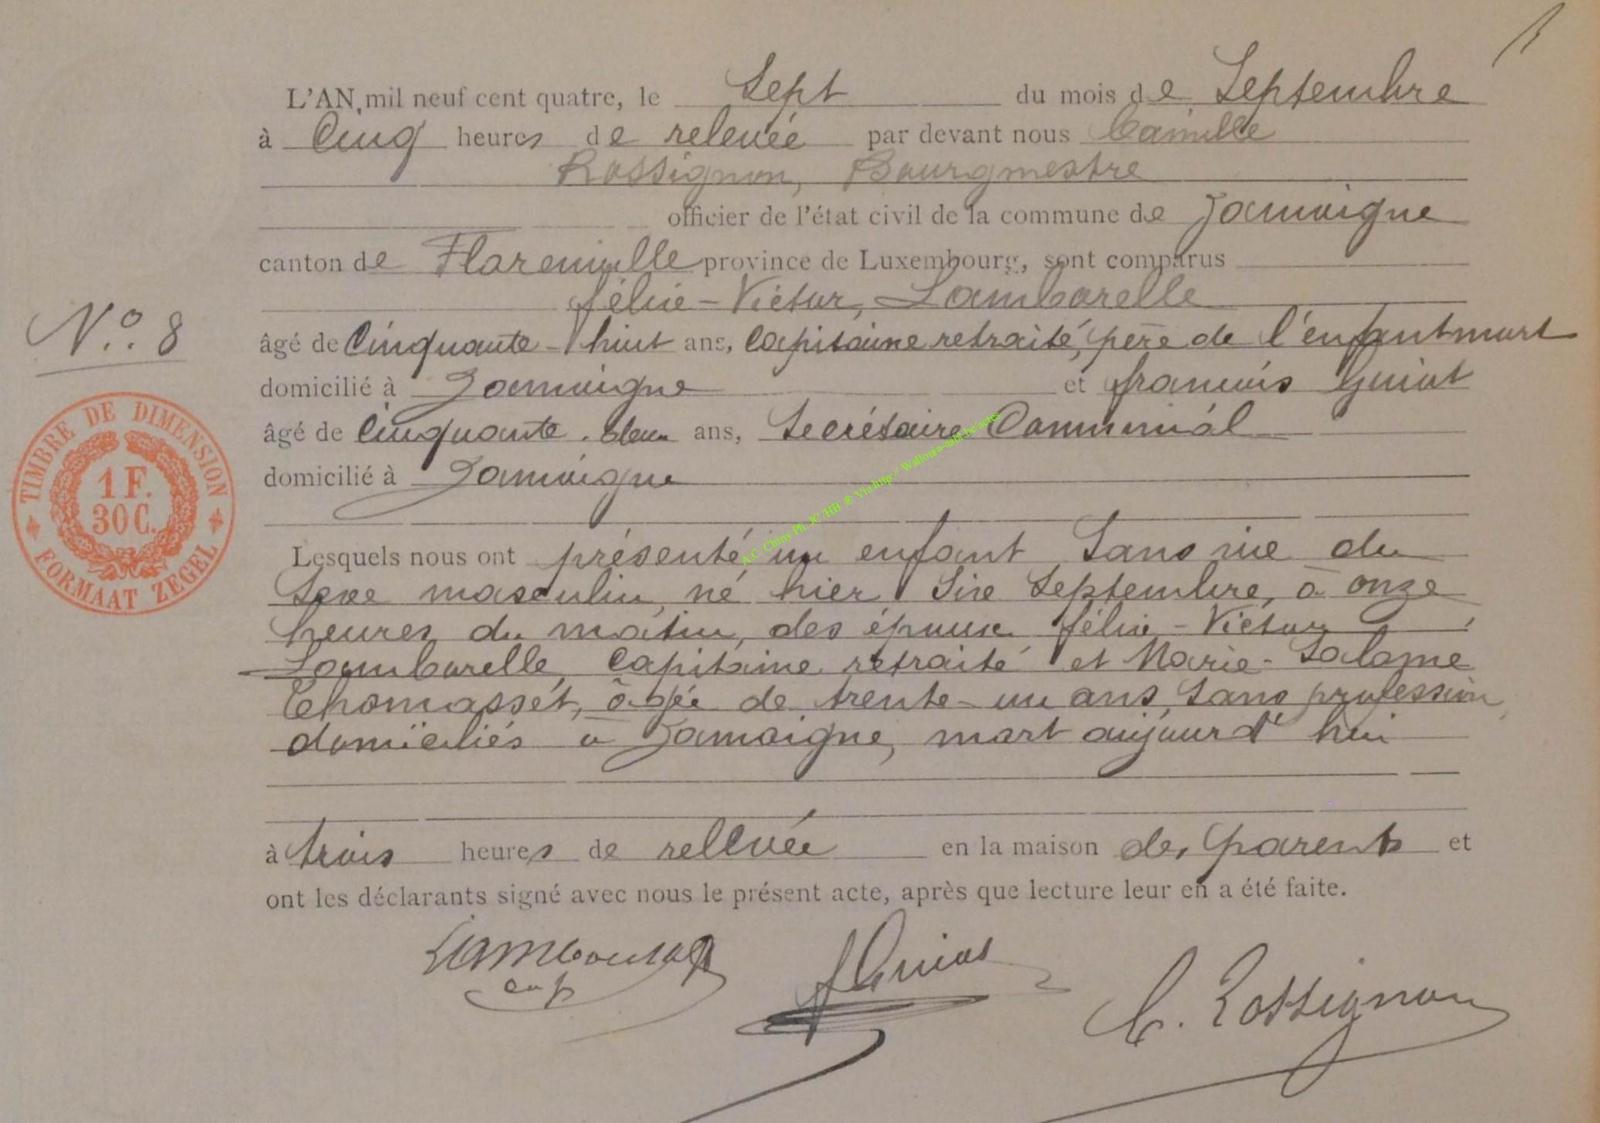 L'AN mil neuf cent quatre, le Sept du mois de Septembre
à Cinq heures de relevée par devant nous Camille
Rossignon, Bourgmestre
officier de l'état civil de la commune de Jamoigne
canton de Florenville province de Luxembourg, sont comparus
félix-Victor, Lamborelle
N° 8
âgé de Cinquante-huit ans, Capitaine retraité, père de l'enfant mort
domicilié à Jamoigne et françois Guiot
âgé de Cinquante-deux ans, Secrétaire Communal
domicilié à Jamoigne
TIMBRE DE DIMENSION
1 F.
30 C.
FORMAAT ZEGEL
Lesquels nous ont présenté un enfant Sans vie du
Sexe masculin, né hier Six Septembre, à onze
heures du matin, des époux félix-Victor
Lamborelle, Capitaine retraité et Marie-Salomé
Thomasset, âgée de trente-un ans, Sans profession,
domiciliés à Jamoigne, mort aujourd'hui
à trois heures de rellevée en la maison des parents et
ont les déclarants signé avec nous le présent acte, après que lecture leur en a été faite.
Lamborelle
cap
f Guiot
C. Rossignon